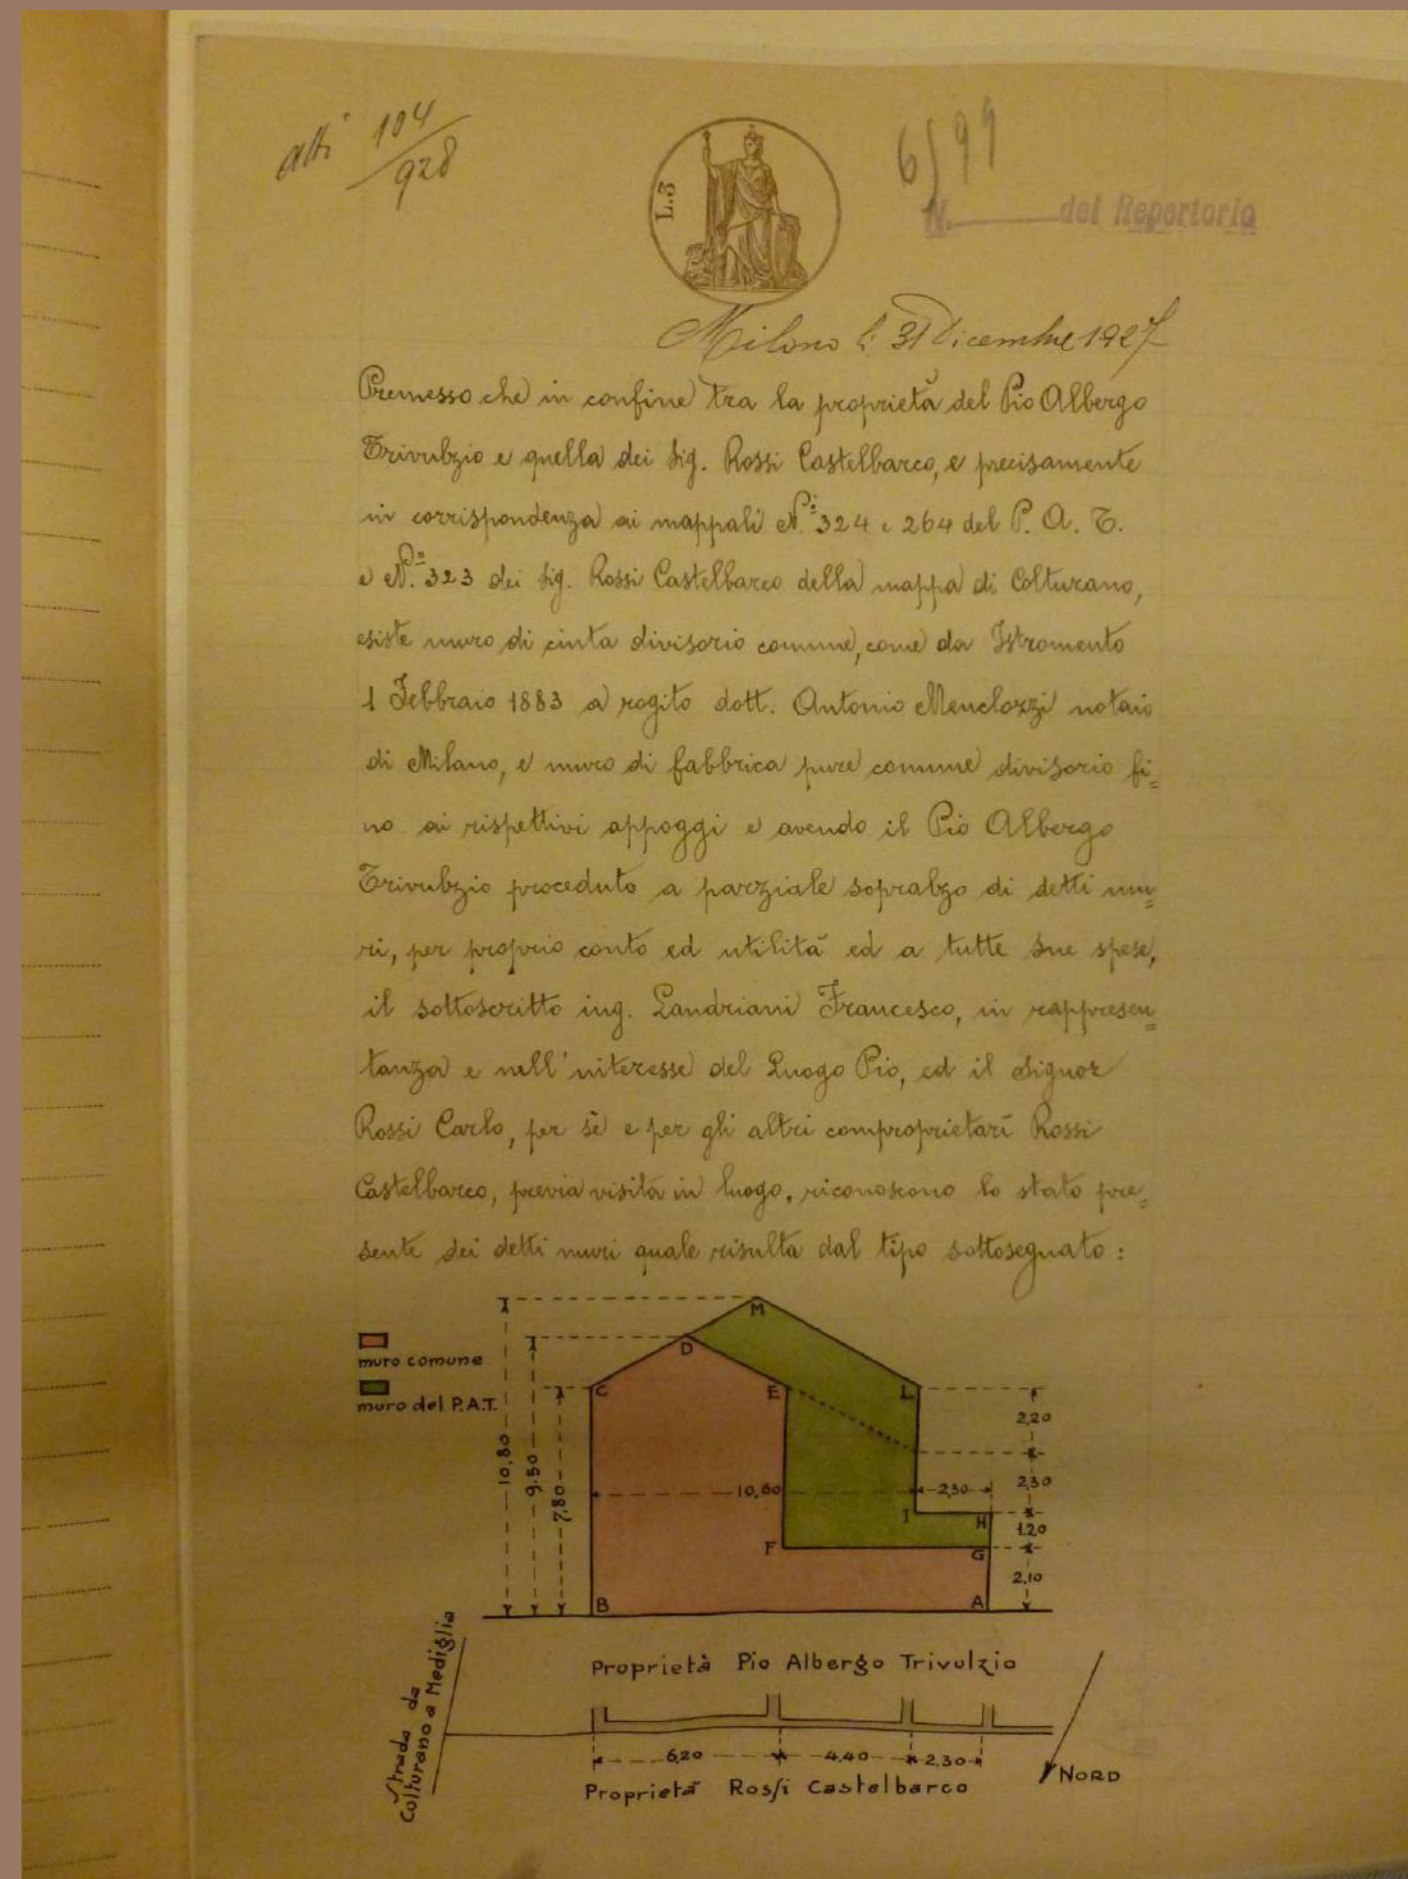 atti 104/928
L.3
6199
N. del Repertorio
Milano li 31 Dicembre 1927
Premesso che in confine tra la proprietà del Pio Albergo
Trivulzio e quella dei Sig. Rossi Castelbarco, e precisamente
in corrispondenza ai mappali N.i 324 e 264 del P. A. T.
e N.o 323 dei Sig. Rossi Castelbarco della mappa di Colturano,
esiste muro di cinta divisorio comune, come da Istromento
1 Febbraio 1883 a rogito dott. Antonio Menclozzi notaio
di Milano, e muro di fabbrica pure comune divisorio fi=
no ai rispettivi appoggi e avendo il Pio Albergo
Trivulzio proceduto a parziale sopralzo di detti mu=
ri, per proprio conto ed utilità ed a tutte sue spese,
il sottoscritto ing. Landriani Francesco, in rappresen=
tanza e nell'interesse del Luogo Pio, ed il Signor
Rossi Carlo, per sè e per gli altri comproprietari Rossi
Castelbarco, previa visita in luogo, riconoscono lo stato pre=
sente dei detti muri quale risulta dal tipo sottosegnato:
muro comune
muro del P.A.T.
M
D
C E L
10,80
9.50
7,80
10,60
2,30
2,20
2,30
1.20
2,10
I H
F G
B A
Strada da
Colturano a Mediglia
Proprietà Pio Albergo Trivulzio
6,20 4,40 2,30
Proprietà Rossi Castelbarco
NORD